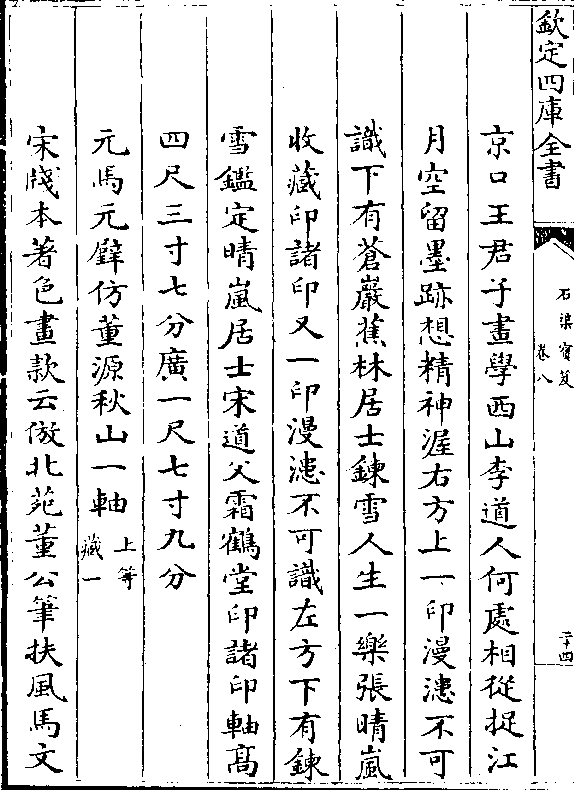 欽定四庫全書
石渠寳笈
卷八
二十四
京口王君子畫學西山李道人何處相從捉江
月空留墨跡想精神渥右方上一印漫漶不可
識下有蒼巖蕉林居士鍊雪人生一樂張晴嵐
收藏印諸印又一印漫漶不可識左方下有鍊
雪鑑定晴嵐居士宋道父霜鶴堂印諸印軸髙
四尺三寸七分廣一尺七寸九分
元馬元㢸仿董源秋山一軸
上等
藏一
宋牋本著色畫款云倣北苑董公筆扶風馬文